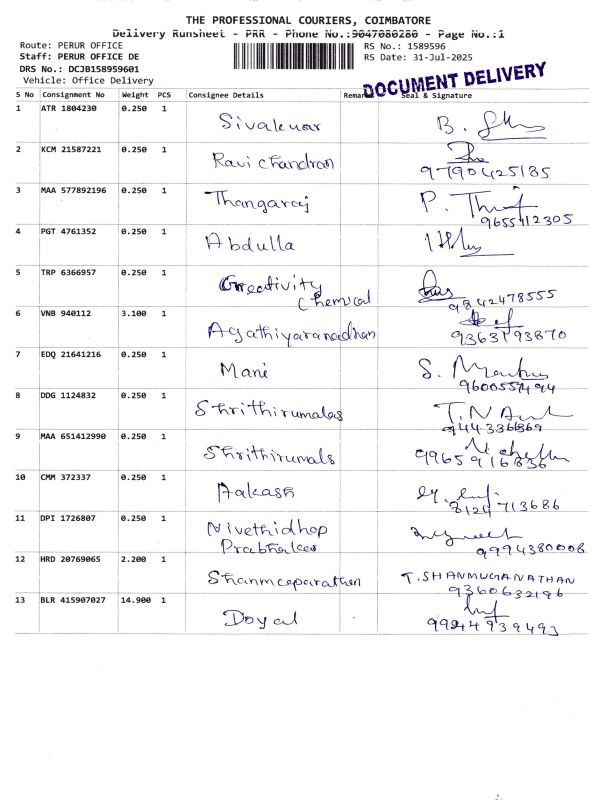 THE PROFESSIONAL COURIERS, COIMBATORE
Delivery Runsheet - PRR - Phone No.:9047080280 - Page No.:1
Route: PERUR OFFICE
RS No.: 1589596
Staff: PERUR OFFICE DE
RS Date: 31-Jul-2025
DRS No.: DCJB158959601
Vehicle: Office Delivery
DOCUMENT DELIVERY
S No Consignment No Weight PCS Consignee Details Remarks Seal & Signature
1 ATR 1804230 0.250 1 Sivakumar B.
2 KCM 21587221 0.250 1 Ravi chandran
9790425185
3 MAA 577892196 0.250 1 Thangaraj P.
9655412305
4 PGT 4761352 0.250 1 Abdulla
5 TRP 6366957 0.250 1 Greativity
chemical 9842478555
6 VNB 940112 3.100 1 Agathiyaranadhan
9363193870
7 EDQ 21641216 0.250 1 Mani S.
9600557494
8 DDG 1124832 0.250 1 Shrithirumalas T.N
9444336869
9 MAA 651412990 0.250 1 Shrithirumals
9965916836
10 CMM 372337 0.250 1 Aakash
8124713686
11 DPI 1726807 0.250 1 Nivethidhop
Prabhakar 9994380008
12 HRD 20769065 2.200 1 Shanmceparathen T.SHANMUGANATHAN
9360632196
13 BLR 415907027 14.900 1 Doyal
9944939493